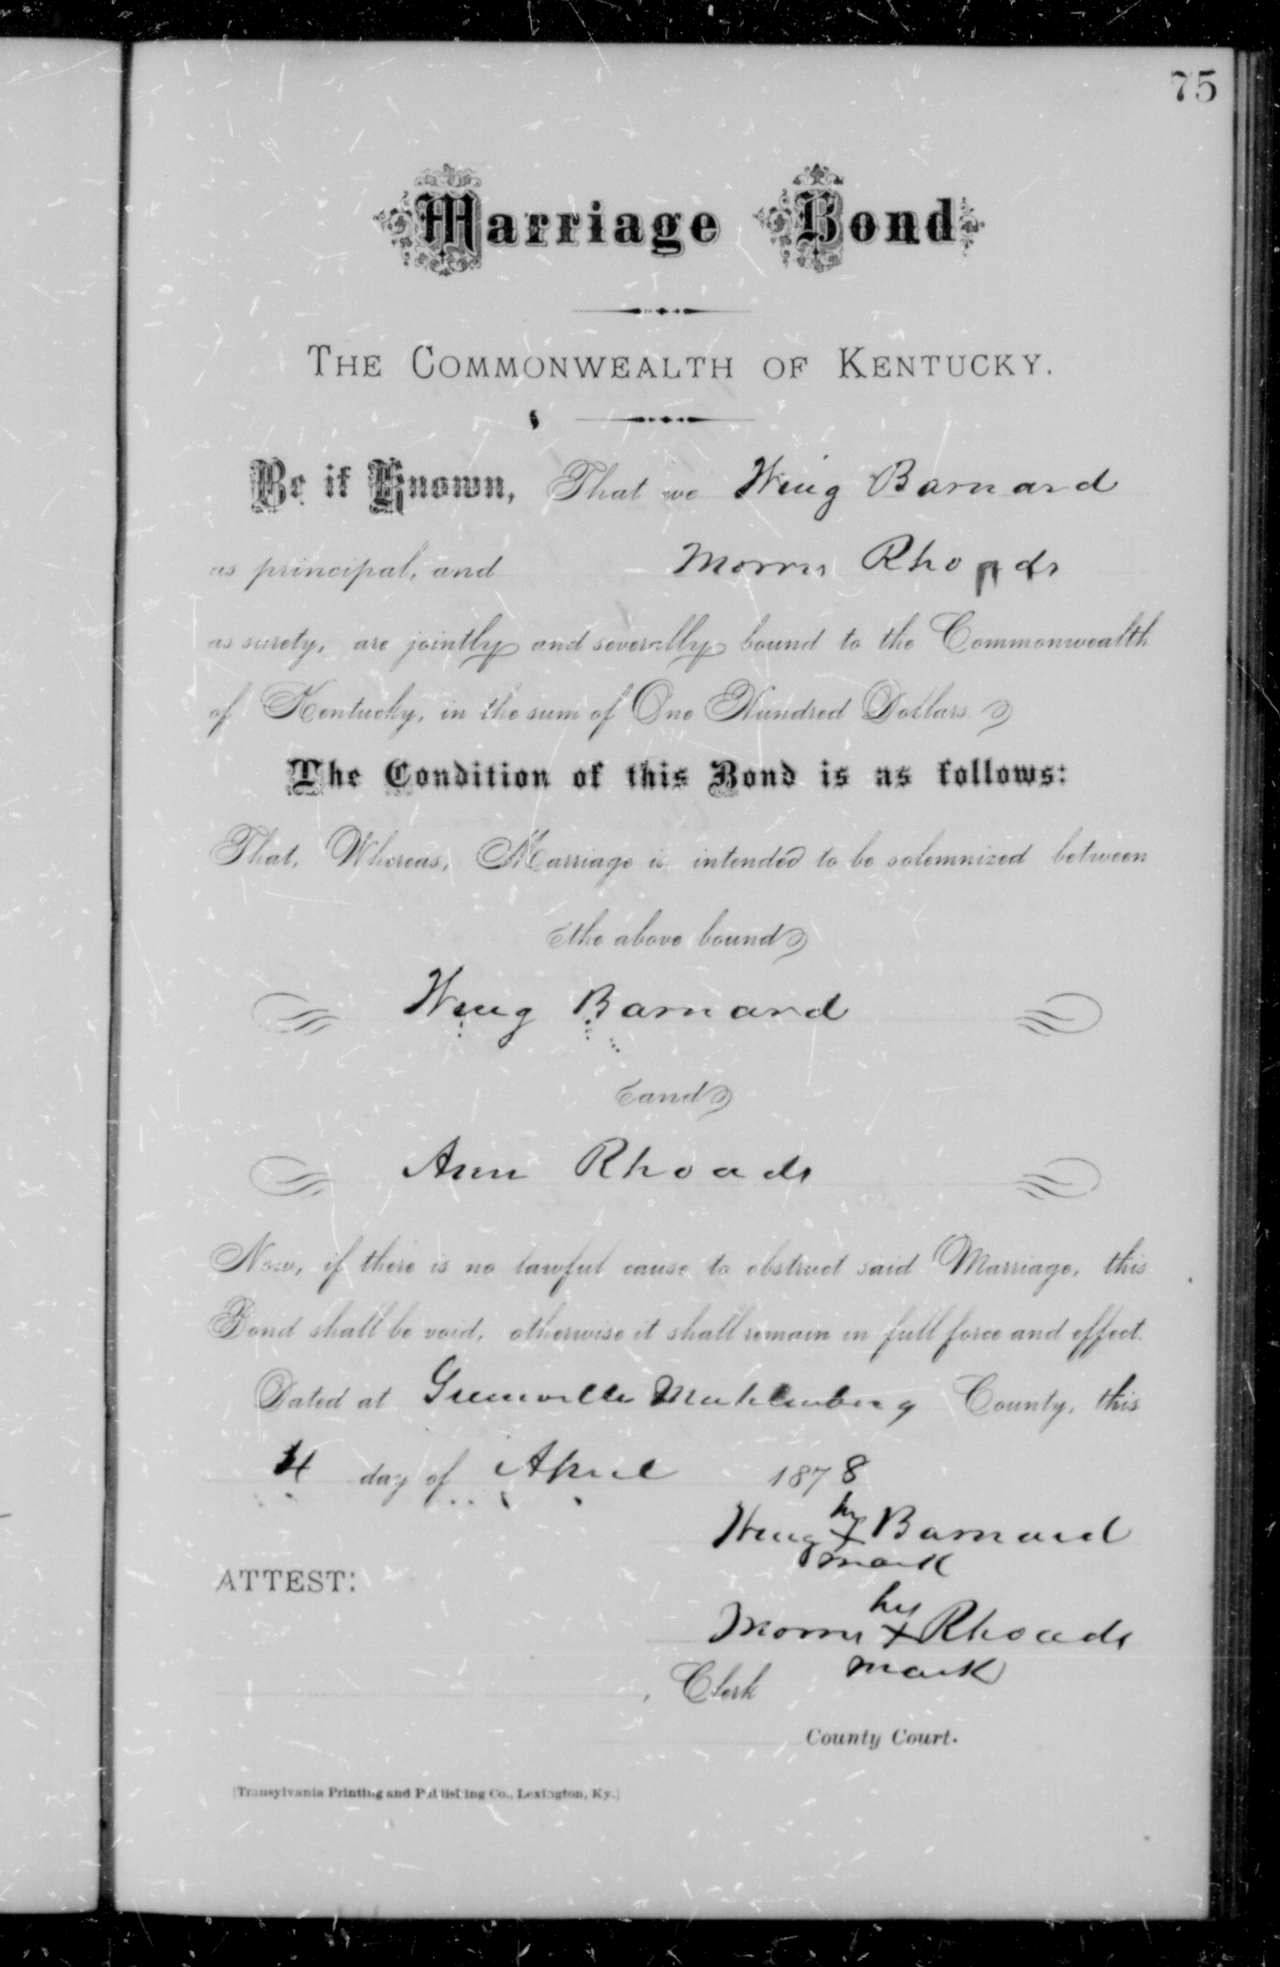 75
Marriage Bond
THE COMMONWEALTH OF KENTUCKY.
Be it Known, That we Wing Barnard
as principal, and Morris Rhoads
as surety, are jointly and severally bound to the Commonwealth
of Kentucky, in the sum of One Hundred Dollars
The Condition of this Bond is as follows:
That, Whereas, Marriage is intended to be solemnized between
the above bound
Wing Barnard
and
Ann Rhoads
Now, if there is no lawful cause to obstruct said Marriage, this
Bond shall be void, otherwise it shall remain in full force and effect.
Dated at Greenville Muhlenberg County, this
4 day of April 1878
Wing his X Barnard
mark
ATTEST:
Morris his X Rhoads
mark
, Clerk
County Court.
[Transylvania Printing and Publishing Co., Lexington, Ky.]